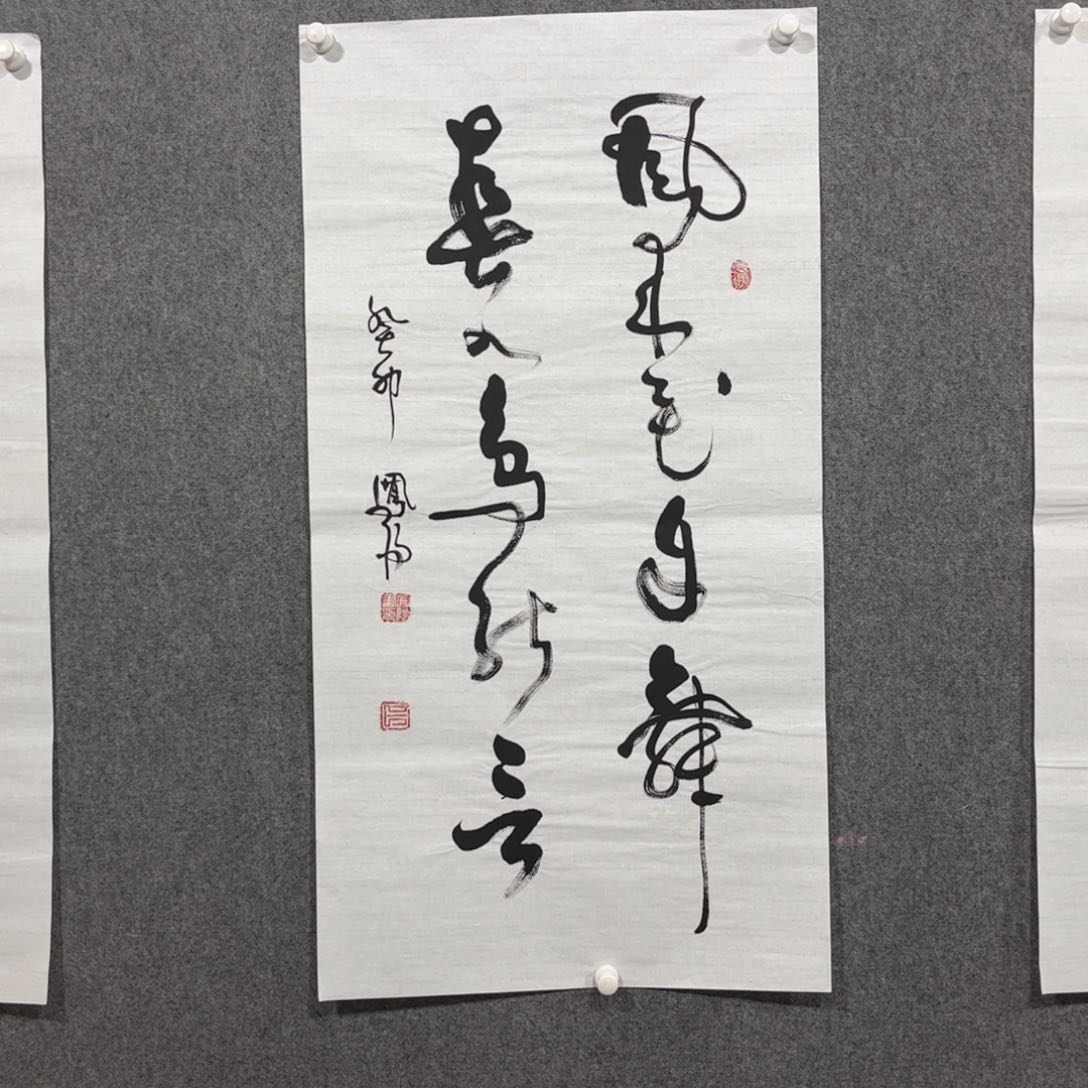 風来花自舞
春入鳥能言
癸卯 鳳陽